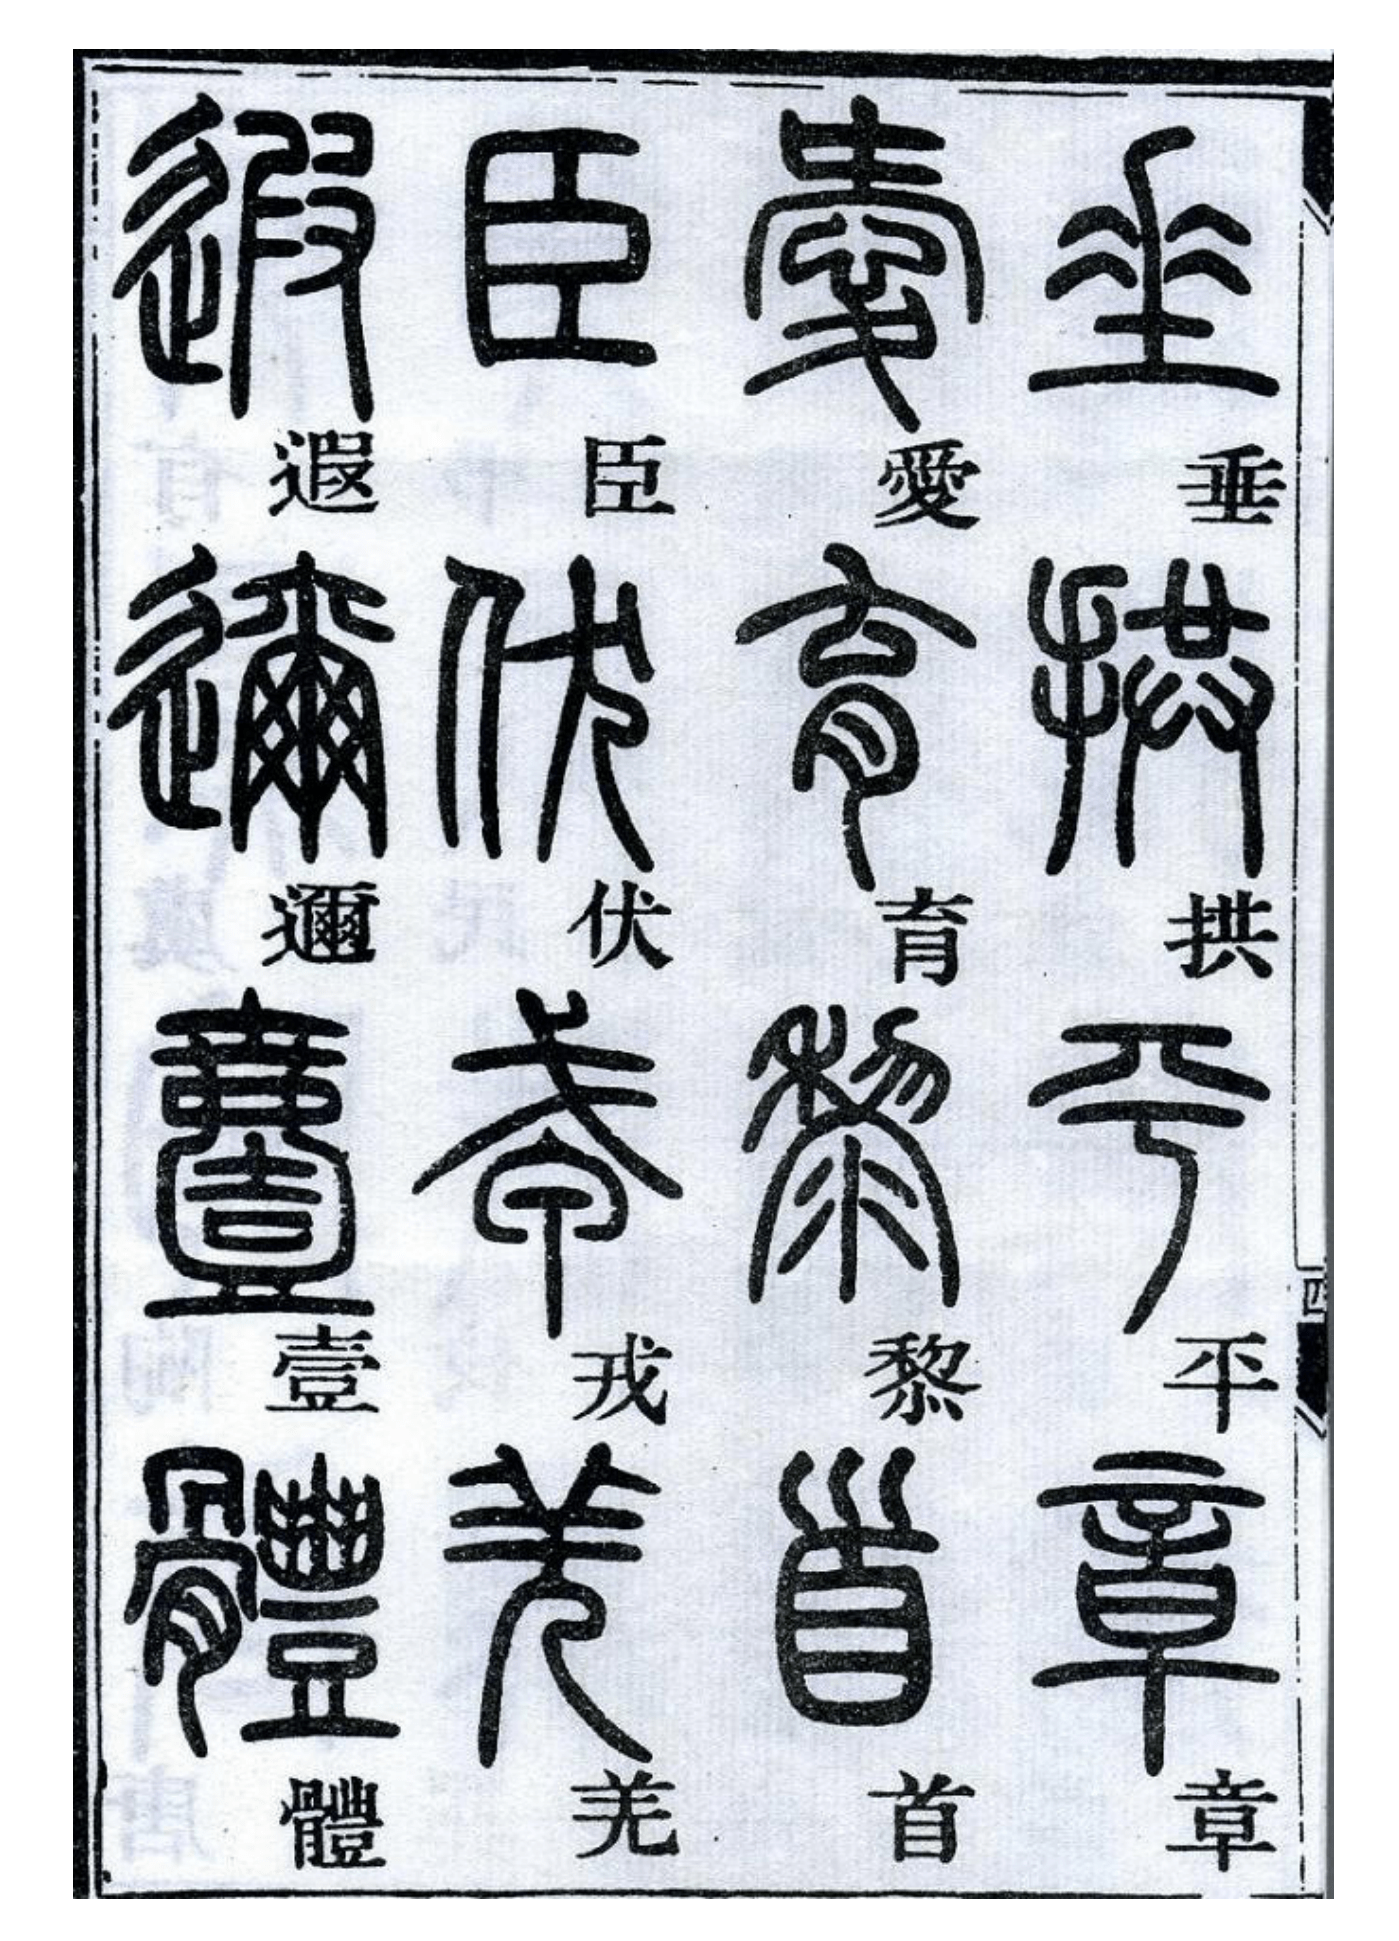 垂拱平章
愛育黎首
臣伏戎羌
遐邇壹體
四